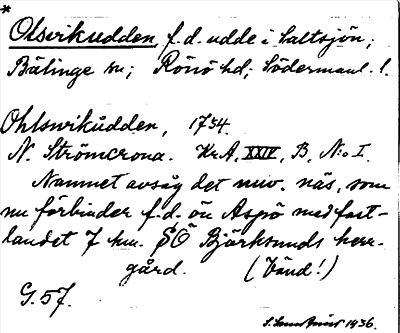 *
Olsvikudden f.d. udde i Saltsjön;
Bälinge sn; Rönö hd; Södermanl. l.
Ohlswikudden, 1734.
N. Strömcrona. Kr.A. XXIV, B, N:o I.
Namnet avsåg det nuv. näs, som
nu förbinder f.d. ön Aspö med fast-
landet 7 km. SÖ Björksunds herr-
gård. (Vänd!)
G. 57.
1936.